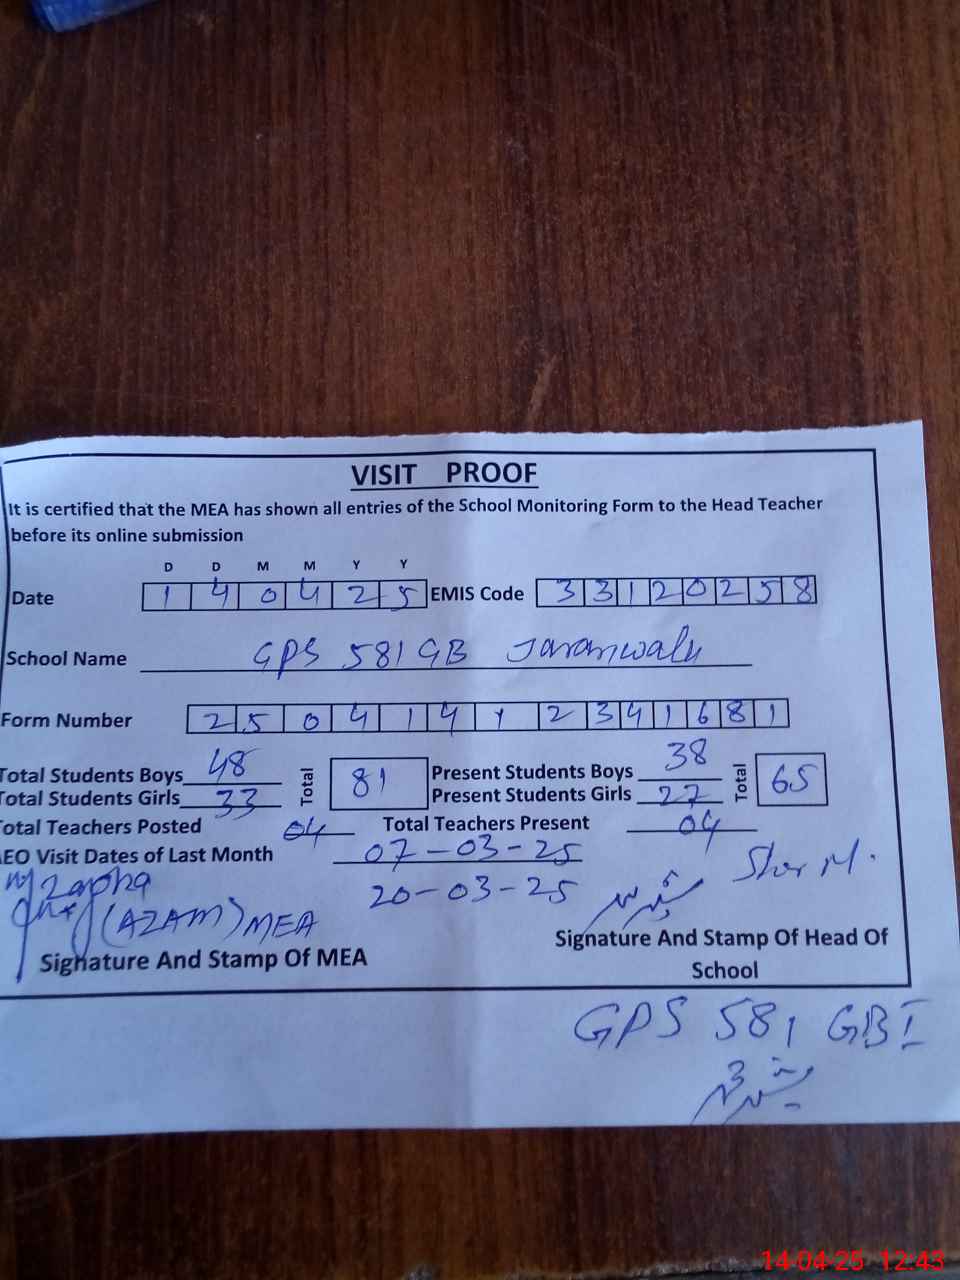 VISIT PROOF
It is certified that the MEA has shown all entries of the School Monitoring Form to the Head Teacher
before its online submission
D D M M Y Y
Date 1 4 0 4 2 5 EMIS Code 3 3 1 2 0 2 5 8
School Name GPS 581 GB Jaranwala
Form Number 2 5 0 4 1 4 1 2 3 4 1 6 8 1
Total Students Boys 48 Total 81 Present Students Boys 38 Total 65
Total Students Girls 33 Present Students Girls 27
Total Teachers Posted 04 Total Teachers Present 04
AEO Visit Dates of Last Month 07-03-25
20-03-25
Sher M.
(AZAM) MEA
Signature And Stamp Of MEA
Signature And Stamp Of Head Of
School
GPS 581 GB I
14-04-25 12:43